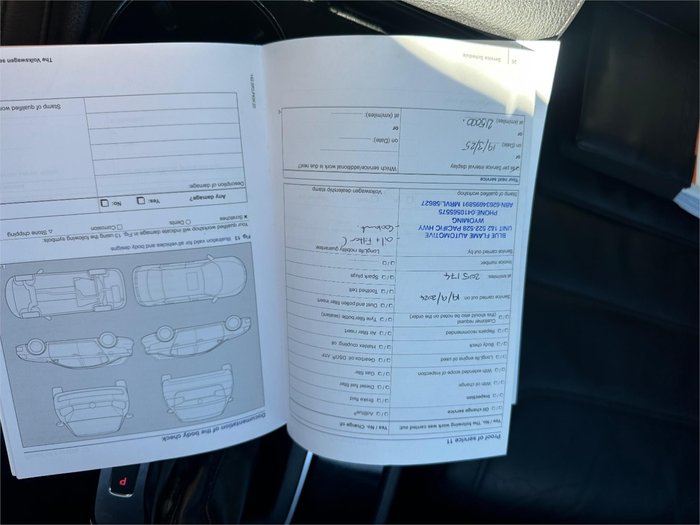 Proof of service 11
Yes No The following work was carried out:
Oil change service
Inspection
With oil change
With extended scope of inspection
LongLife engine oil used
Body check
Repairs recommended
Customer request
(this should also be noted on the order)
Yes No Change of:
AdBlue®
Brake fluid
Diesel fuel filter
Gas filter
Gearbox oil, DSG®, ATF
Haldex coupling oil
Air filter insert
Tyre filler bottle (sealant)
Dust and pollen filter insert
Toothed belt
Spark plugs
Service carried out on: 19/9/2024
at km/miles: 205174
Invoice number:
Service carried out by:
BLUE FLAME AUTOMOTIVE
UNIT 1&2 522-528 PACIFIC HWY
WYOMING
PHONE:0410565575
Stamp of qualified workshop
LongLife mobility guarantee
Volkswagen dealership stamp
Your next service
As per Service interval display
or
on (Date): 19/3/25
or
at km/miles: 215000.
Which service/additional work is due next?
on (Date)
or
at (km/miles)
36
Service Schedule
Documentation of the body check
Fig. 13 Illustration valid for all vehicles and body designs
Your qualified workshop will indicate damage in Fig. 13 using the following symbols
x Scratches
Dents
Corrosion
△ Stone chipping
Any damage?
Yes
No
Description of damage:
Stamp of qualified wor
The Volkswagen se
P